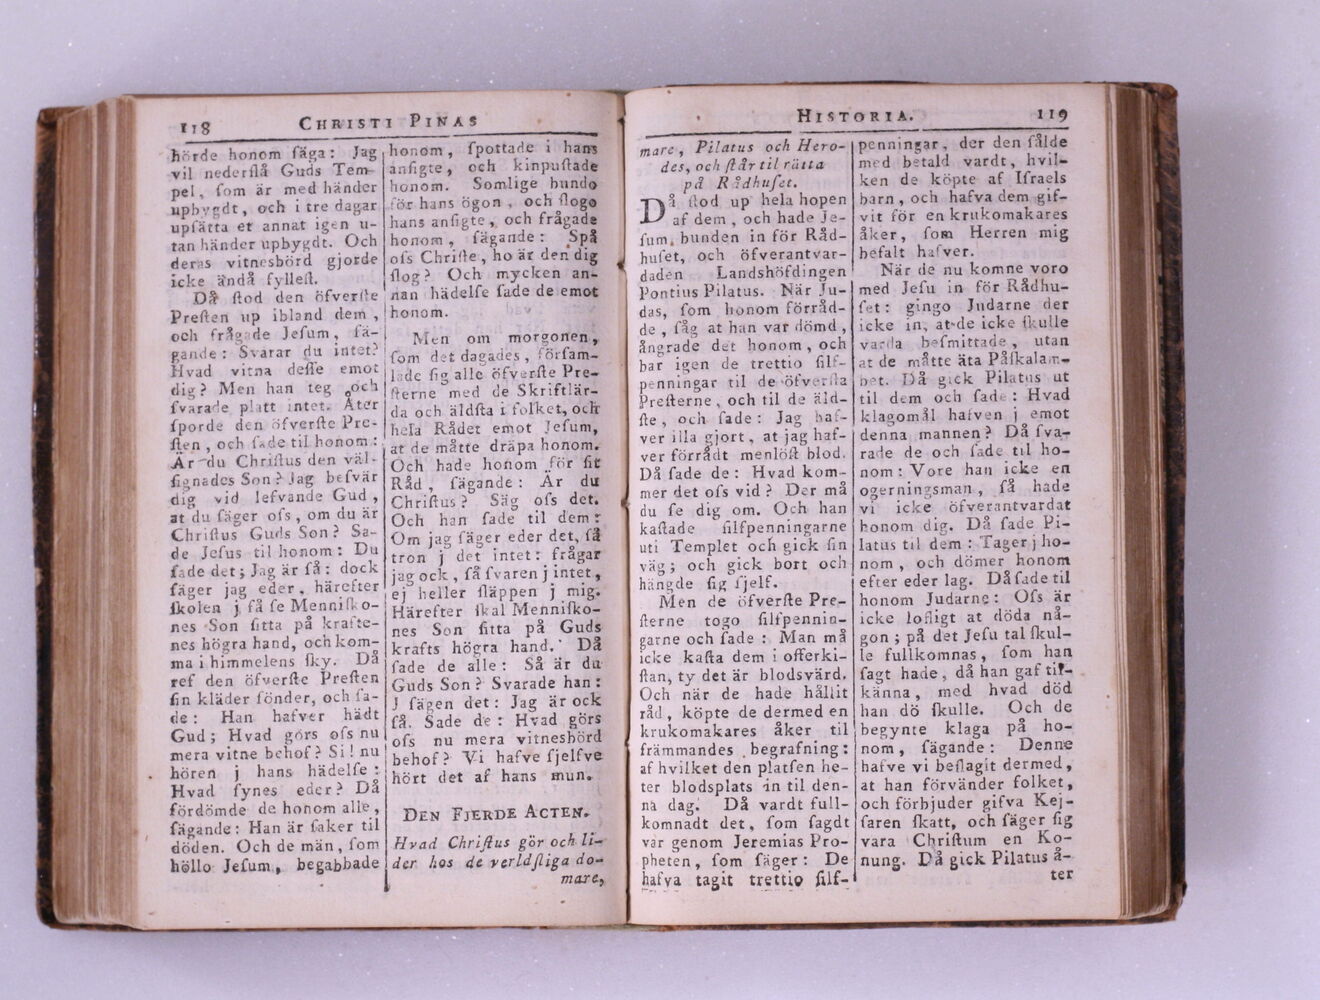 118 CHRISTI PINAS
hörde honom ſäga: Jag
vil nederſlå Guds Tem-
pel, ſom är med händer
upbygdt, och i tre dagar
upſätta et annat igen u-
tan händer upbygdt. Och
deras vitnesbörd gjorde
icke ändå fylleſt.
Då ſtod den öfverſte
Preſten up ibland dem,
och frågade Jeſum, ſä-
gande: Svarar du intet?
Hvad vitna deſſe emot
dig? Men han teg och
ſvarade platt intet. Åter
ſporde den öfverſte Pre-
ſten, och ſade til honom:
Är du Chriſtus den väl-
ſignades Son? Jag beſvär
dig vid lefvande Gud,
at du ſäger oſs, om du är
Chriſtus Guds Son? Sa-
de Jeſus til honom: Du
ſade det; Jag är ſå: dock
ſäger jag eder, härefter
ſkolen j få ſe Menniſko-
nes Son ſitta på krafte-
nes högra hand, och kom-
ma i himmelens ſky. Då
ref den öfverſte Preſten
ſin kläder ſönder, och ſa-
de: Han hafver hädt
Gud; Hvad görs oſs nu
mera vitne behof? Si! nu
hören j hans hädelſe:
Hvad ſynes eder? Då
fördömde de honom alle,
ſägande: Han är ſaker til
döden. Och de män, ſom
höllo Jeſum, begabbade
honom, ſpottade i hans
anſigte, och kinpuſtade
honom. Somlige bundo
för hans ögon, och ſlogo
hans anſigte, och frågade
honom, ſägande: Spå
oſs Chriſte, ho är den dig
ſlog? Och mycken an-
nan hädelſe ſade de emot
honom.
Men om morgonen,
ſom det dagades, förſam-
lade ſig alle öfverſte Pre-
ſterne med de Skriftlär-
da och äldſta i folket, och
hela Rådet emot Jeſum,
at de måtte dräpa honom.
Och hade honom för ſit
Råd, ſägande: Är du
Chriſtus? Säg oſs det.
Och han ſade til dem:
Om jag ſäger eder det, ſå
tron j det intet: frågar
jag ock, ſå ſvaren j intet,
ej heller ſläppen j mig.
Härefter ſkal Menniſko-
nes Son ſitta på Guds
krafts högra hand. Då
ſade de alle: Så är du
Guds Son? Svarade han:
J ſägen det: Jag är ock
ſå. Sade de: Hvad görs
oſs nu mera vitnesbörd
behof? Vi hafve ſjelfve
hört det af hans mun.
DEN FJERDE ACTEN.
Hvad Chriſtus gör och li-
der hos de verldſliga do-
mare,
HISTORIA. 119
mare, Pilatus och Hero-
des, och ſtår til rätta
på Rådhuſet.
Då ſtod up hela hopen
af dem, och hade Je-
ſum bunden in för Råd-
huſet, och öfverantvar-
daden Landshöfdingen
Pontius Pilatus. När Ju-
das, ſom honom förråd-
de, ſåg at han var dömd,
ångrade det honom, och
bar igen de trettio ſilf-
penningar til de öfverſta
Preſterne, och til de äld-
ſte, och ſade: Jag haf-
ver illa gjort, at jag haf-
ver förrådt menlöſt blod.
Då ſade de: Hvad kom-
mer det oſs vid? Der må
du ſe dig om. Och han
kaſtade ſilfpenningarne
uti Templet och gick ſin
väg; och gick bort och
hängde ſig ſjelf.
Men de öfverſte Pre-
ſterne togo ſilfpennin-
garne och ſade: Man må
icke kaſta dem i offerki-
ſtan, ty det är blodsvärd.
Och när de hade hållit
råd, köpte de dermed en
krukomakares åker til
främmandes begrafning:
af hvilket den platſen he-
ter blodsplats in til den-
na dag. Då vardt full-
komnadt det, ſom ſagdt
var genom Jeremias Pro-
pheten, ſom ſäger: De
hafva tagit trettio ſilf-
penningar, der den ſålde
med betald vardt, hvil-
ken de köpte af Iſraels
barn, och hafva dem gif-
vit för en krukomakares
åker, ſom Herren mig
befalt hafver.
När de nu komne voro
med Jeſu in för Rådhu-
ſet: gingo Judarne der
icke in, at de icke ſkulle
varda beſmittade, utan
at de måtte äta Påſkalam-
bet. Då gick Pilatus ut
til dem och ſade: Hvad
klagomål hafven j emot
denna mannen? Då ſva-
rade de och ſade til ho-
nom: Vore han icke en
ogerningsman, ſå hade
vi icke öfverantvardat
honom dig. Då ſade Pi-
latus til dem: Tager j ho-
nom, och dömer honom
efter eder lag. Då ſade til
honom Judarne: Oſs är
icke loſligt at döda nå-
gon; på det Jeſu tal ſkul-
le fullkomnas, ſom han
ſagt hade, då han gaf til-
känna, med hvad död
han dö ſkulle. Och de
begynte klaga på ho-
nom, ſägande: Denne
hafve vi beſlagit dermed,
at han förvänder folket,
och förbjuder gifva Kej-
ſaren ſkatt, och ſäger ſig
vara Chriſtum en Ko-
nung. Då gick Pilatus å-
ter